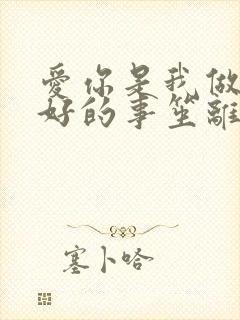 愛你是我做
好的事笙離
塞卜哈